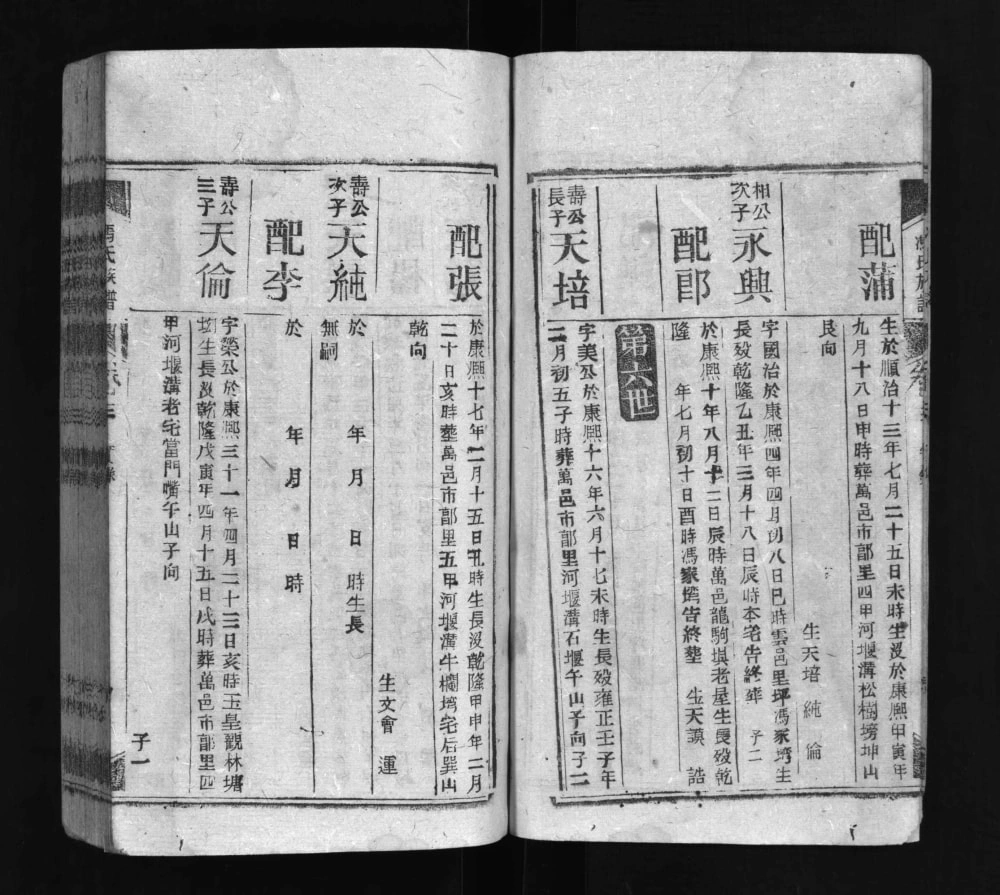 配蒲
生於順治十三年七月二十五日未時生沒於康熙甲寅年
九月十八日申時葬萬邑市部里四甲河堰溝松樹塝坤山
艮向
生天培 純 倫
相公
次子
永興
字國治於康熙四年四月初八日巳時雲邑里坪馮家塆生
長歿乾隆乙丑年三月十八日辰時本宅告終葬 子二
配郎
於康熙十年八月十二日辰時萬邑龍駒埧老屋生長歿乾
隆 年七月初十日酉時馮家塆告終塟 生天謨 誥
第六世
壽公
長子
天培
字美公於康熙十六年六月十七未時生長歿雍正壬子年
二月初五子時葬萬邑市部里河堰溝石堰午山子向子二
配張
於康熙十七年二月十五日丑時生長沒乾隆甲申年二月
二十日亥時塟萬邑市部里五甲河堰溝牛欄塆宅后巽山
乾向
生文會 運
壽公
次子
天純
於 年 月 日 時生長
無嗣
配李
於 年 月 日 時
壽公
三子
天倫
字榮公於康熙三十一年四月二十三日亥時玉皇觀林塘
坳生長沒乾隆戊寅年四月十五日戌時葬萬邑市部里四
甲河堰溝老宅當門嘴午山子向
子一
馮氏族譜